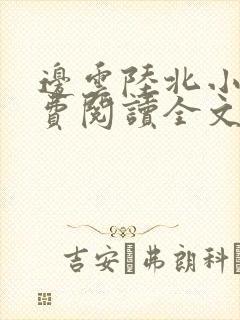 邊雲陸北小
費閱讀全文
吉安·弗朗科·